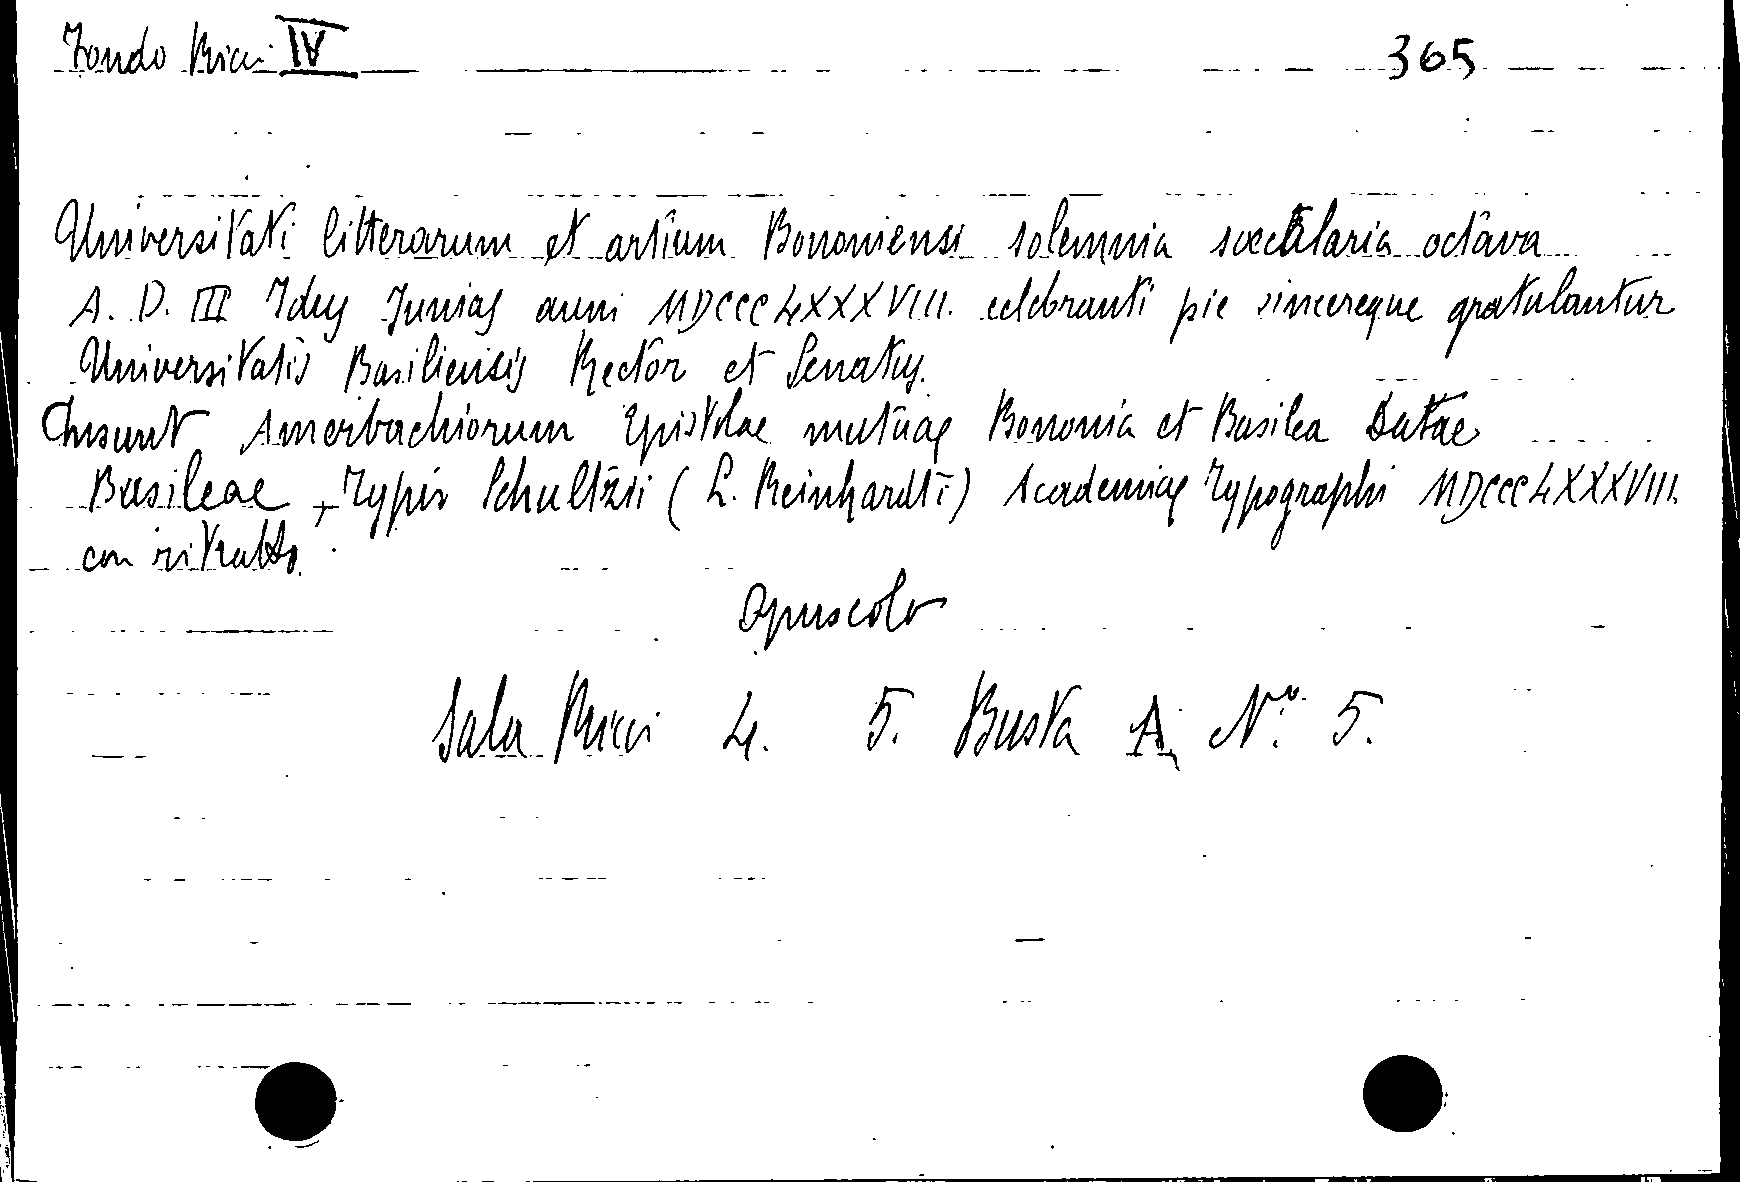 Fondo Ricci IV 365
Universitati litterarum et artium Bononiensi solemnia saecularia octava
A. D. III Idus Junias anni MDCCCLXXXVIII. celebranti pie sincereque gratulantur
Universitatis Basiliensis Rector et Senatus.
Insunt Amerbachiorum Epistolae mutuae Bononia et Basilea Datae
Basileae, Typis Schultzii (L. Reinhardti) Academiae Typographi MDCCCLXXXVIII.
con ritratto.
Opuscolo
Sala Ricci 4. 5. Busta A. N.° 5.